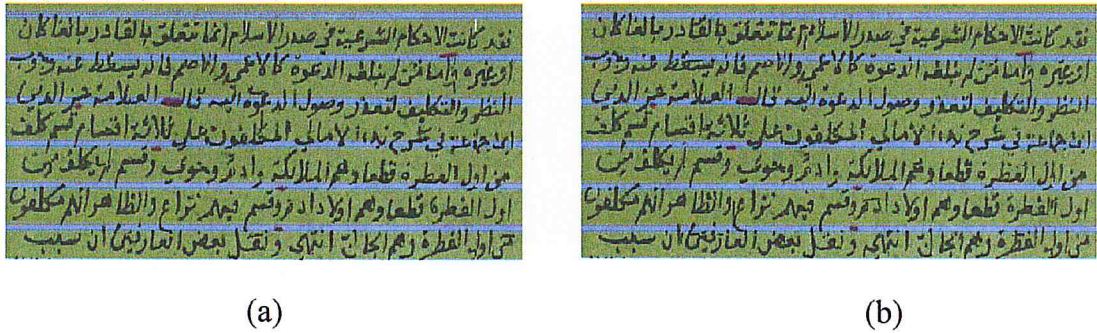 فقد كانت الاحكام الشرعية في صدر الاسلام انما تتعلق بالقادر بالغا كان
او غيره واما من لم تبلغه الدعوة كالاعمى والاصم فانه يسقط عنه وجوب
النظر والتكليف لتعذر وصول الدعوة اليه قال العلامة عز الدين
ابن جماعة في شرح بدء الامالي المكلفون على ثلاثة اقسام قسم كلف
من اول الفطرة قطعا وهم الملائكة وادم وحوى وقسم لم يكلف من
اول الفطرة قطعا وهم اولاد ادم وقسم فيهم نزاع والظاهر انهم مكلفون
من اول الفطرة وهم الجان انتهى ونقل بعض العارفين ان سبب
(a)
فقد كانت الاحكام الشرعية في صدر الاسلام انما تتعلق بالقادر بالغا كان
او غيره واما من لم تبلغه الدعوة كالاعمى والاصم فانه يسقط عنه وجوب
النظر والتكليف لتعذر وصول الدعوة اليه قال العلامة عز الدين
ابن جماعة في شرح بدء الامالي المكلفون على ثلاثة اقسام قسم كلف
من اول الفطرة قطعا وهم الملائكة وادم وحوى وقسم لم يكلف من
اول الفطرة قطعا وهم اولاد ادم وقسم فيهم نزاع والظاهر انهم مكلفون
من اول الفطرة وهم الجان انتهى ونقل بعض العارفين ان سبب
(b)